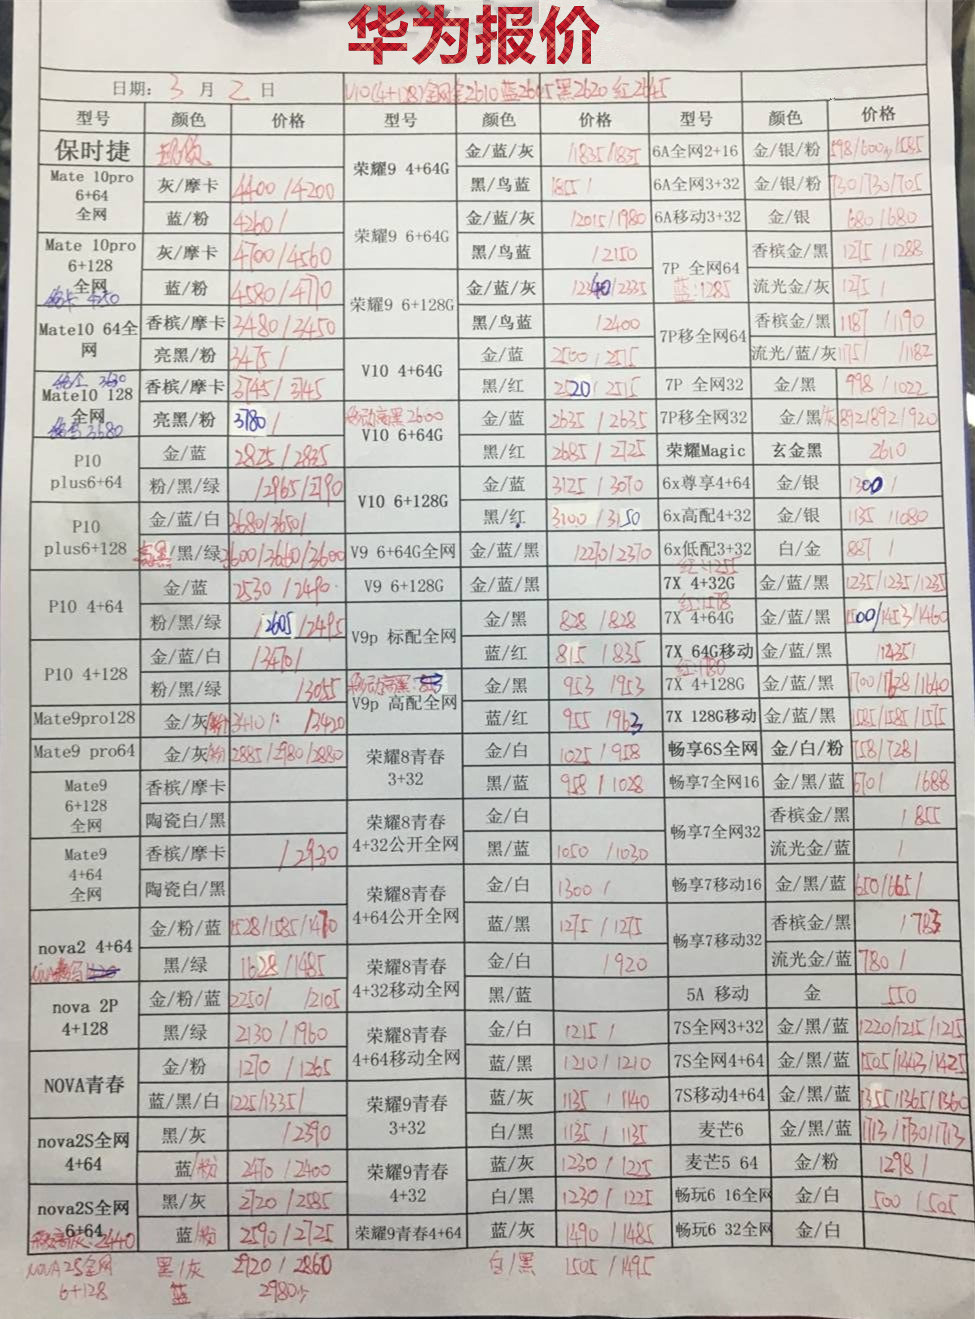 华为报价
日期: 3 月 2 日 V10(4+128)全网金2610蓝2605黑2620 红2645
型号 颜色 价格 型号 颜色 价格 型号 颜色 价格
保时捷
Mate 10pro 6+64 全网 灰/摩卡 4400/4200
蓝/粉 4260/
Mate 10pro 6+128 全网 灰/摩卡 4700/4560
蓝/粉 4580/4710
Mate10 64全网 香槟/摩卡 3480/3450
亮黑/粉 3475/
Mate10 128 全网 香槟/摩卡 3745/3745
亮黑/粉 3780/
P10 plus6+64 金/蓝 2825/2835
粉/黑/绿 /2965/2790
P10 plus6+128 金/蓝/白 3680/3650/
/黑/绿 3600/3660/3600
P10 4+64 金/蓝 2530/2490
粉/黑/绿 /2605/2495
P10 4+128 金/蓝/白 /3470/
粉/黑/绿 /3055
Mate9pro128 金/灰/粉 3410/ /3420
Mate9 pro64 金/灰/粉 2885/2980/2880
Mate9 6+128 全网 香槟/摩卡
陶瓷白/黑
Mate9 4+64 全网 香槟/摩卡 /2930
陶瓷白/黑
nova2 4+64 金/粉/蓝 1528/1585/1470
黑/绿 1628/1485
nova 2P 4+128 金/粉/蓝 2250/ /2105
黑/绿 2130/1960
NOVA青春 金/粉 1270/1265
蓝/黑/白 1225/1335/
nova2S全网 4+64 黑/灰 /2390
蓝/粉 2470/2400
nova2S全网 6+64 黑/灰 2720/2585
蓝/粉 2590/2725
NOVA2S全网 6+128 黑/灰 2920/2860
蓝 2980
荣耀9 4+64G 金/蓝/灰 /1835/1835
黑/鸟蓝 1855/
荣耀9 6+64G 金/蓝/灰 /2015/1980
黑/鸟蓝 /2150
荣耀9 6+128G 金/蓝/灰 /2340/2335
黑/鸟蓝 /2400
V10 4+64G 金/蓝 2500/2515
黑/红 2520/2515
V10 6+64G 金/蓝 2635/2635
黑/红 2685/2725
V10 6+128G 金/蓝 3125/3070
黑/红 3100/3150
V9 6+64G全网 金/蓝/黑 /2270/2370
V9 6+128G 金/蓝/黑
V9p 标配全网 金/黑 828/828
蓝/红 815/835
V9p 高配全网 金/黑 953/953
蓝/红 955/963
荣耀8青春 3+32 金/白 1025/958
黑/蓝 958/1028
荣耀8青春 4+32公开全网 金/白
黑/蓝 1050/1030
荣耀8青春 4+64公开全网 金/白 1300/
蓝/黑 1275/1275
荣耀8青春 4+32移动全网 金/白 /920
黑/蓝
荣耀8青春 4+64移动全网 金/白 1215/
蓝/黑 1210/1210
荣耀9青春 3+32 蓝/灰 1135/1140
白/黑 1135/1135
荣耀9青春 4+32 蓝/灰 1230/1225
白/黑 1230/1225
荣耀9青春4+64 蓝/灰 1490/1485
白/黑 1505/1495
6A全网2+16 金/银/粉 598/600/585
6A全网3+32 金/银/粉 730/730/705
6A移动3+32 金/银 680/680
7P 全网64 蓝:1285 香槟金/黑 1275/1288
流光金/灰 1275/
7P移全网64 香槟金/黑 1187/1190
流光/蓝/灰 1175/ /1182
7P 全网32 金/黑 998/1022
7P移全网32 金/黑/灰 892/892/920
荣耀Magic 玄金黑 2610
6x尊享4+64 金/银 1300/
6x高配4+32 金/银 1135/1080
6x低配3+32 白/金 887/
7X 4+32G 红:1255 金/蓝/黑 1235/1235/1235
7X 4+64G 红:1578 金/蓝/黑 1500/1453/1460
7X 64G移动 金/蓝/黑 /1435/
7X 4+128G 红:1780 金/蓝/黑 1700/1628/1640
7X 128G移动 金/蓝/黑 1585/1585/1575
畅享6S全网 金/白/粉 758/728/
畅享7全网16 金/黑/蓝 670/ /688
畅享7全网32 香槟金/黑 /855
流光金/蓝 /
畅享7移动16 金/黑/蓝 650/665/
畅享7移动32 香槟金/黑 /783
流光金/蓝 780/
5A 移动 金 550
7S全网3+32 金/黑/蓝 1220/1215/1215
7S全网4+64 金/黑/蓝 1505/1443/1425
7S移动4+64 金/黑/蓝 1355/1365/1360
麦芒6 金/黑/蓝 1713/1730/1713
麦芒5 64 金/粉 1298/
畅玩6 16全网 金/白 500/505
畅玩6 32全网 金/白